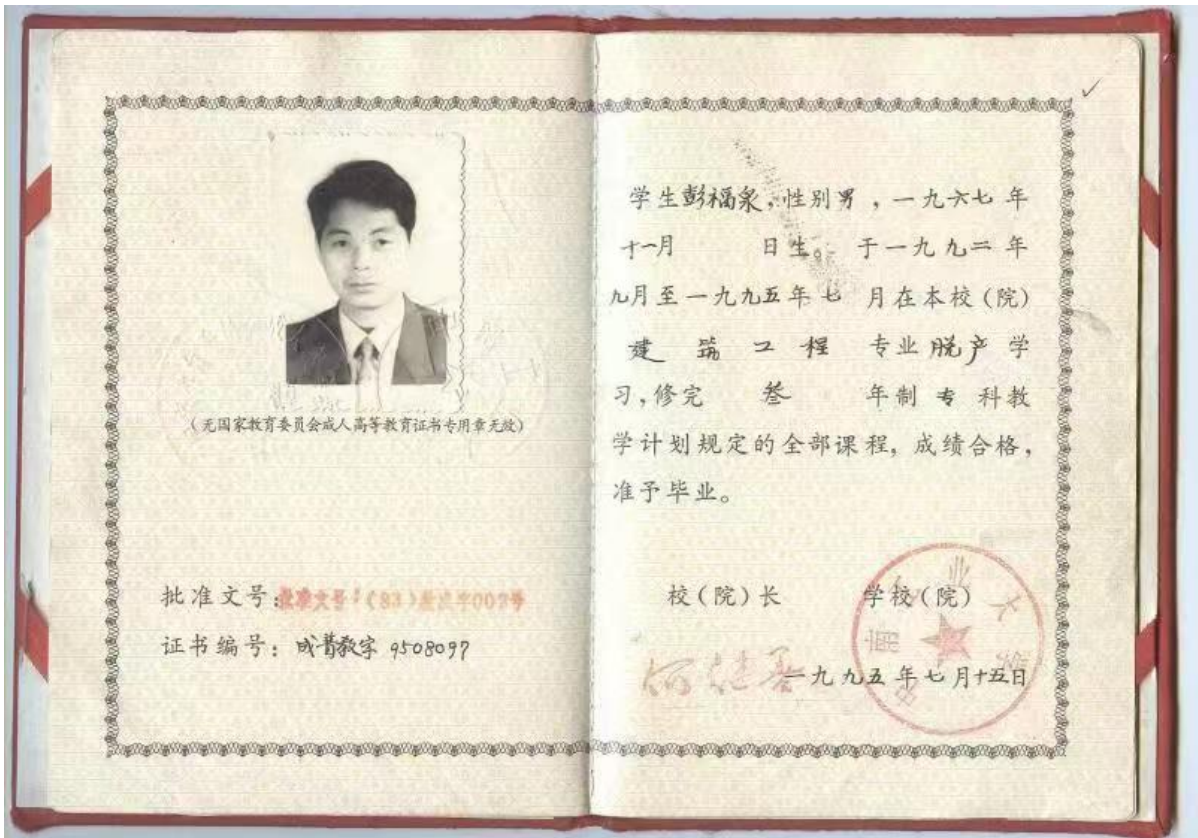 (无国家教育委员会成人高等教育证书专用章无效)
批准文号:批准文号:(83)教成字002号
证书编号: 成普教字 9508097
学生彭福泉,性别男,一九六七年
十一月 日生。于一九九二年
九月至一九九五年七 月在本校(院)
建筑工程 专业脱产学
习,修完 叁 年制专科教
学计划规定的全部课程,成绩合格,
准予毕业。
校(院)长 学校(院)
何继善
一九九五年七月十五日
中南工业大学